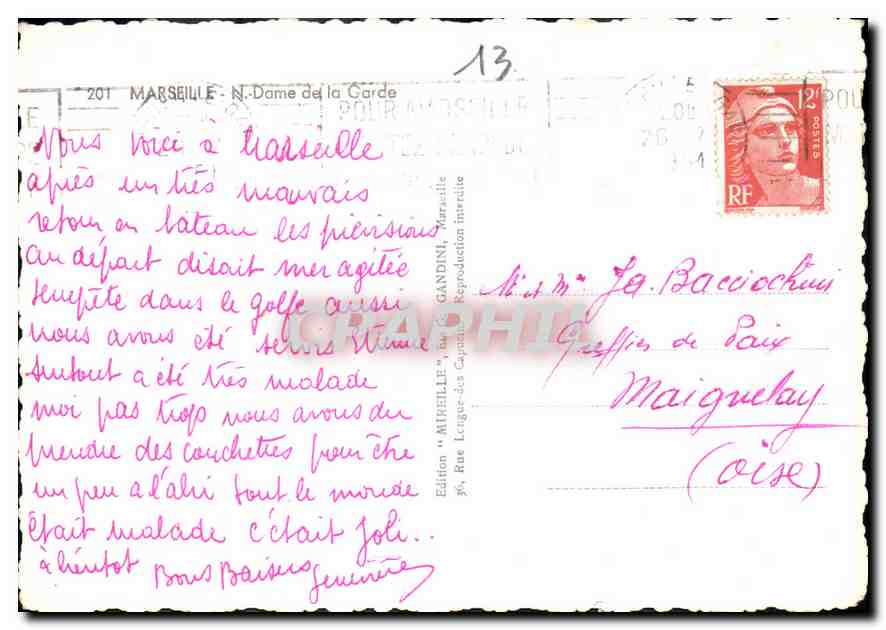 13
201 MARSEILLE - N.-Dame de la Garde
POUR MARSEILLE
Nous voici à Marseille
après un très mauvais
retour en bateau les prévisions
au départ disait mer agitée
tempête dans le golfe aussi
nous avons été servis Etienne
surtout a été très malade
moi pas trop nous avons du
prendre des couchettes pour être
un peu a l'abri tout le monde
était malade c'était joli..
à bientot Bons Baisers Geneviève
Edition "MIREILLE", GANDINI, Marseille
36, Rue Longue-des Capucins Reproduction Interdite
12F
POSTES
RF
M. et Mme Ja. Bacciochini
Greffier de Paix
Maignelay
(Oise)
CPAPHIL